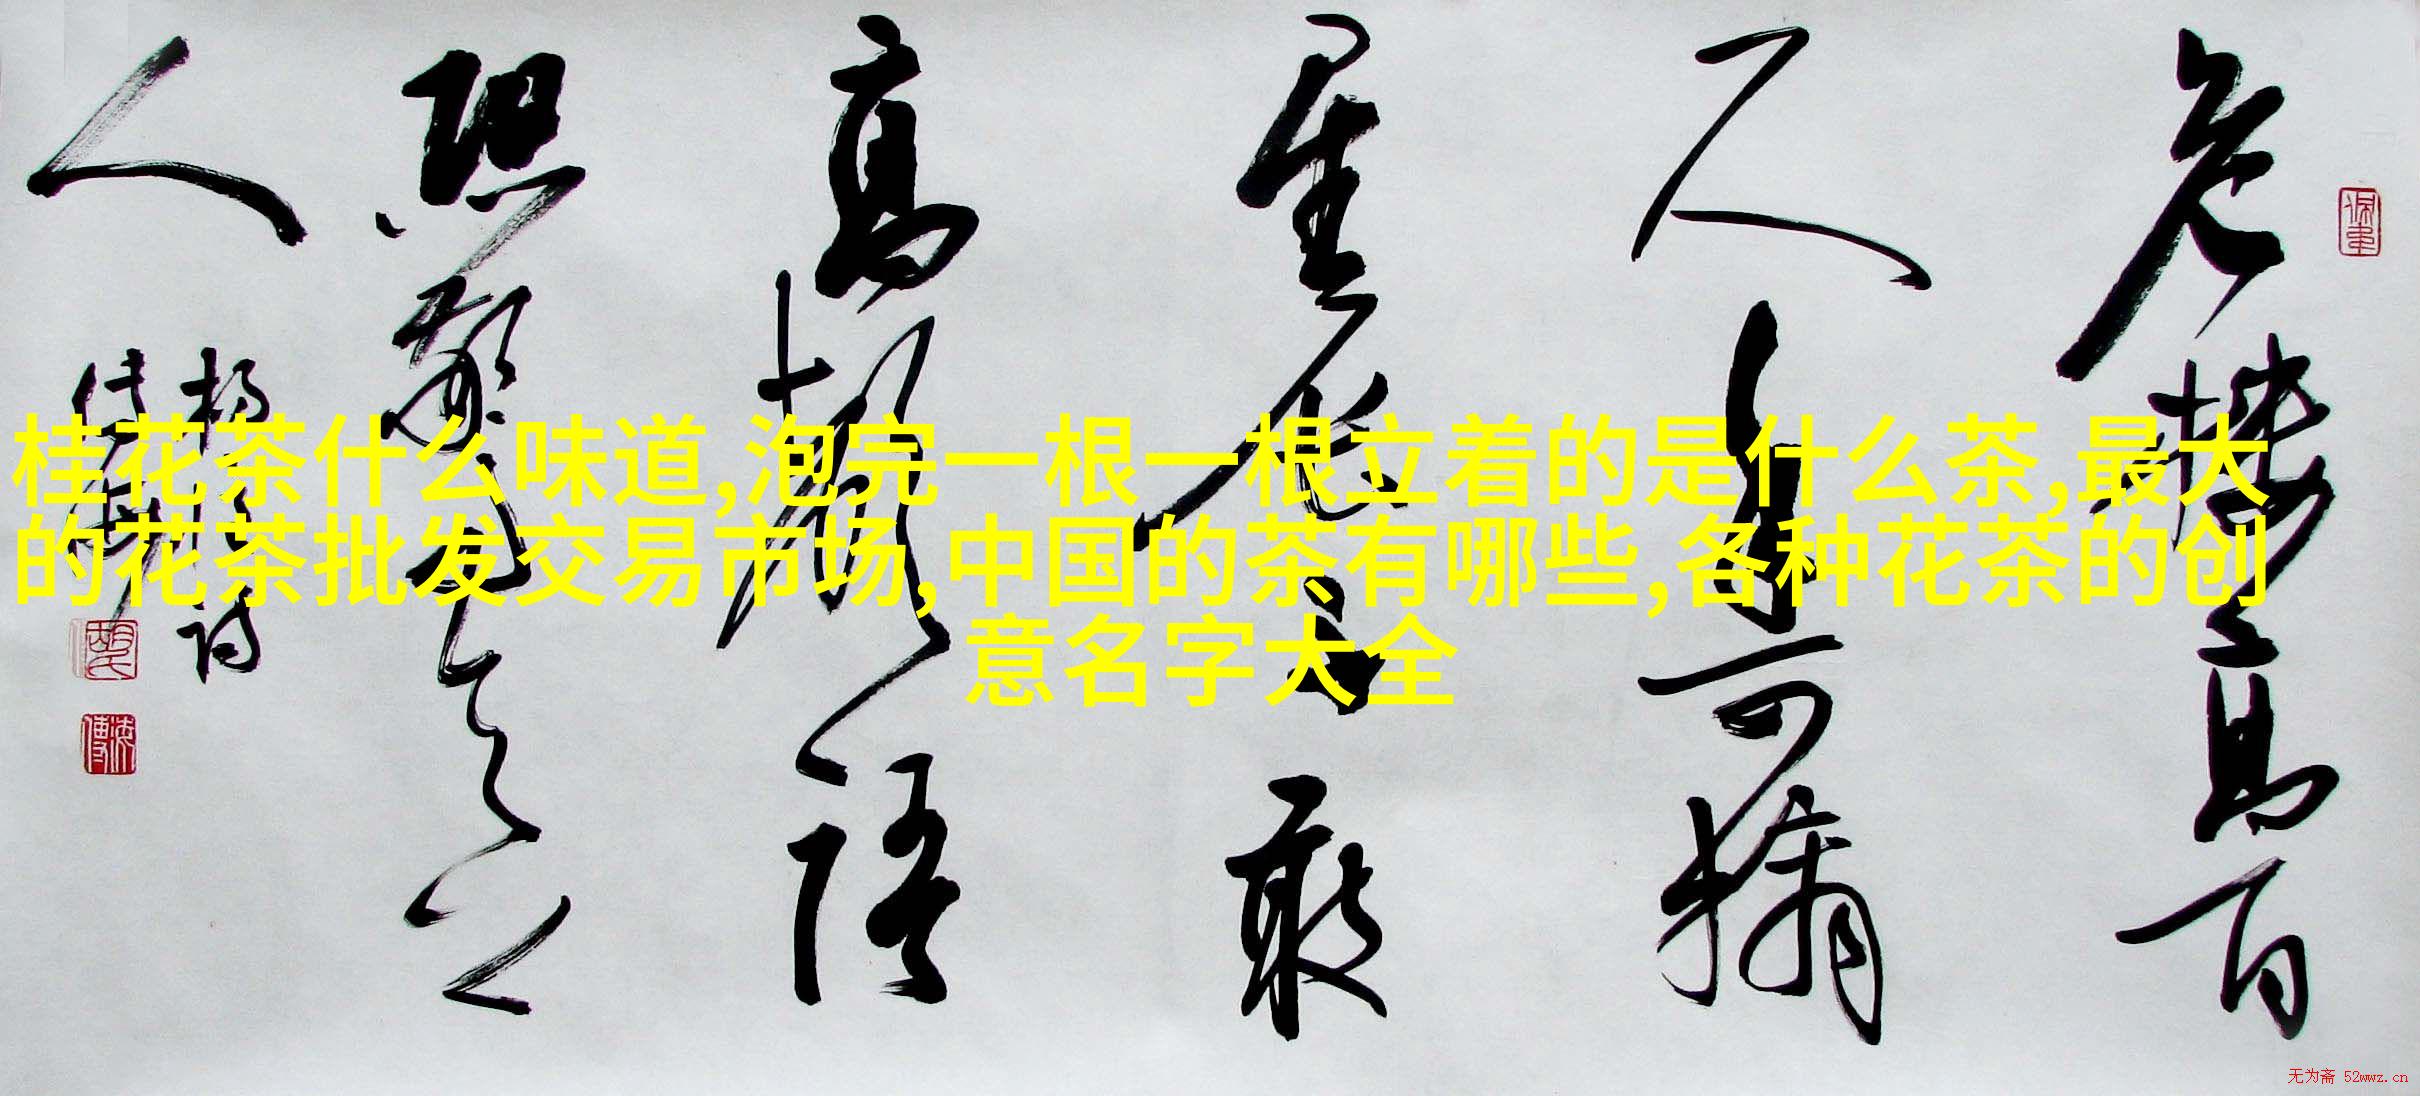 危楼高百
尺手可摘
星辰不敢
高声语
恐惊天上
人
桂花茶什么味道,泡完一根一根立着的是什么茶,最大
的花茶批发交易市场,中国的茶有哪些,各种花茶的创
意名字大全
无为斋 52wwz.cn